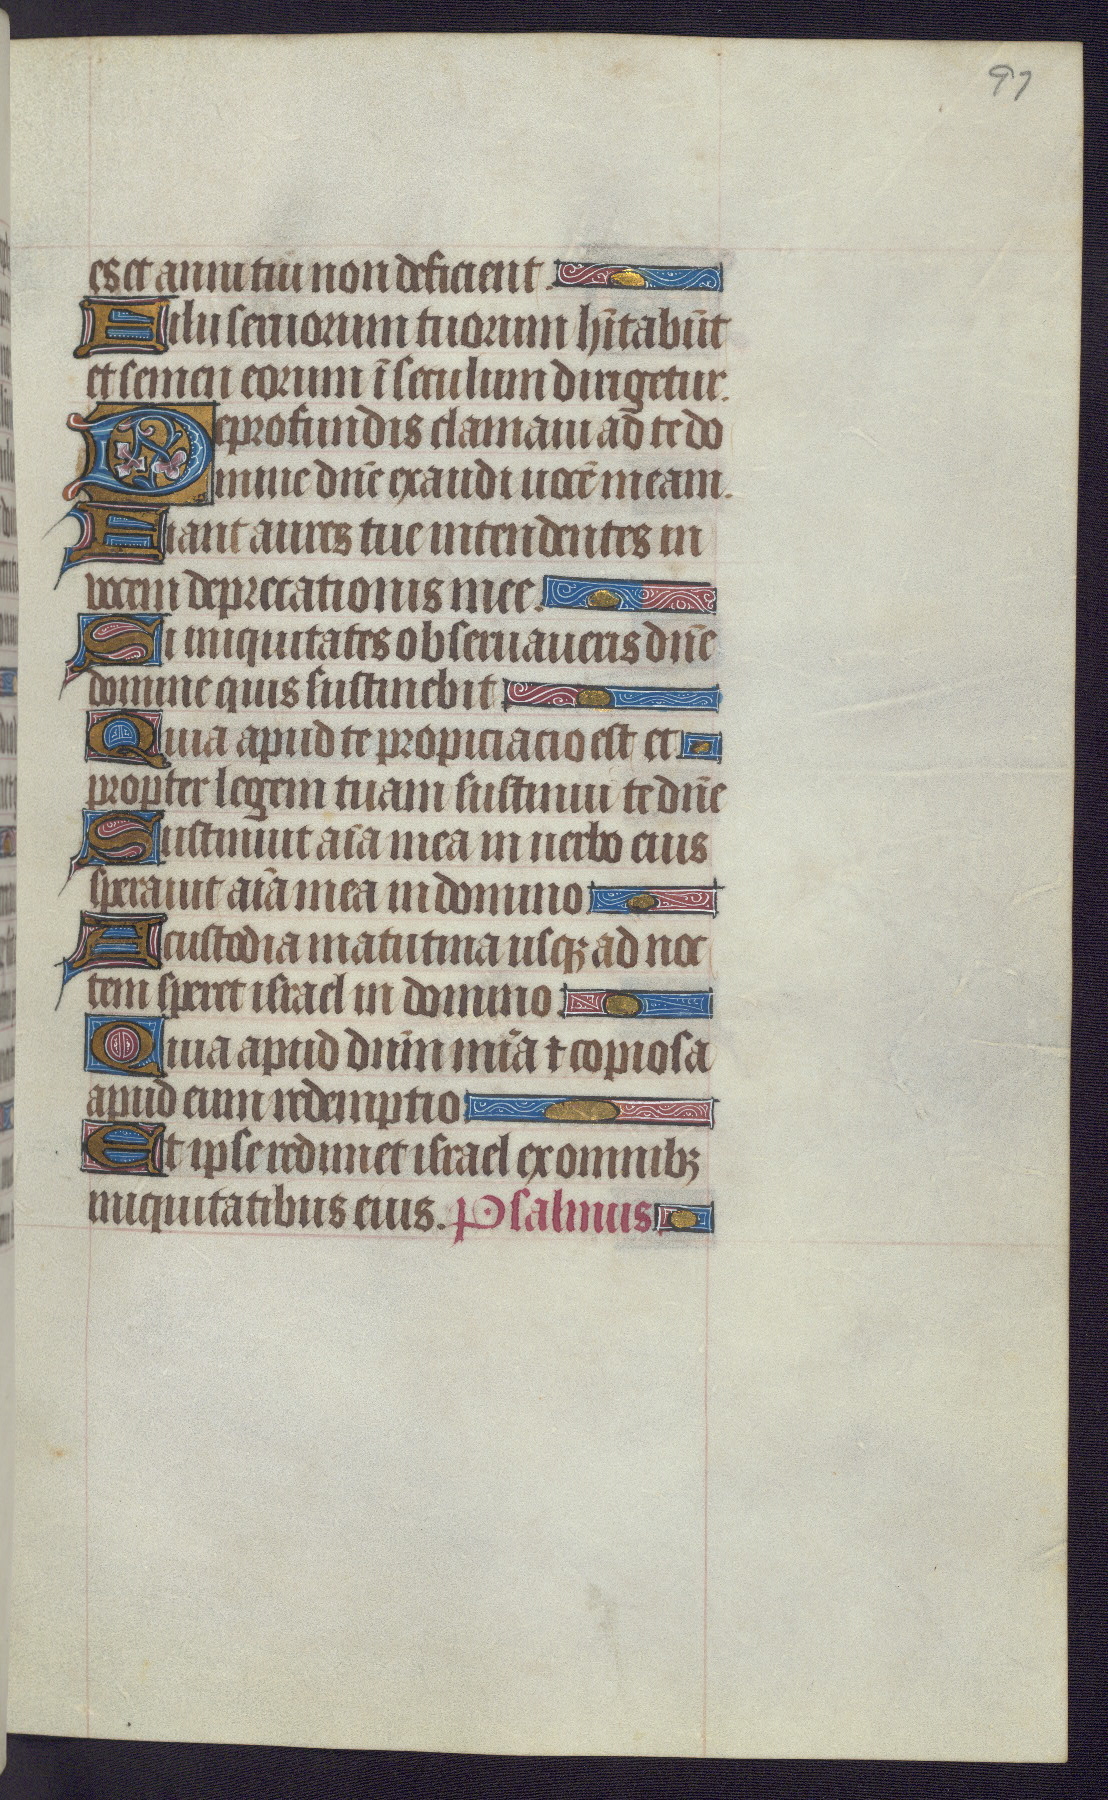 97
es et anni tui non deficient.
Filii seruorum tuorum hĩtabũt
et semen eorum ĩ seculum dirigetur.
De profundis clamaui ad te do
mine dñe exaudi uocẽ meam.
Fiant aures tue intendentes in
vocem deprecationis mee.
Si iniquitates obseruaueris dñe
domine quis sustinebit
Quia apud te propiciacio est et
propter legem tuam sustinui te dñe
Sustinuit aĩa mea in uerbo eius
sperauit aĩa mea in domino
A custodia matutina usqꝫ ad noc
tem speret israel in domino
Quia apud dñm mĩa ⁊ copiosa
apud eum redemptio
Et ipse redimet israel ex omnibꝫ
iniquitatibus eius. Psalmus